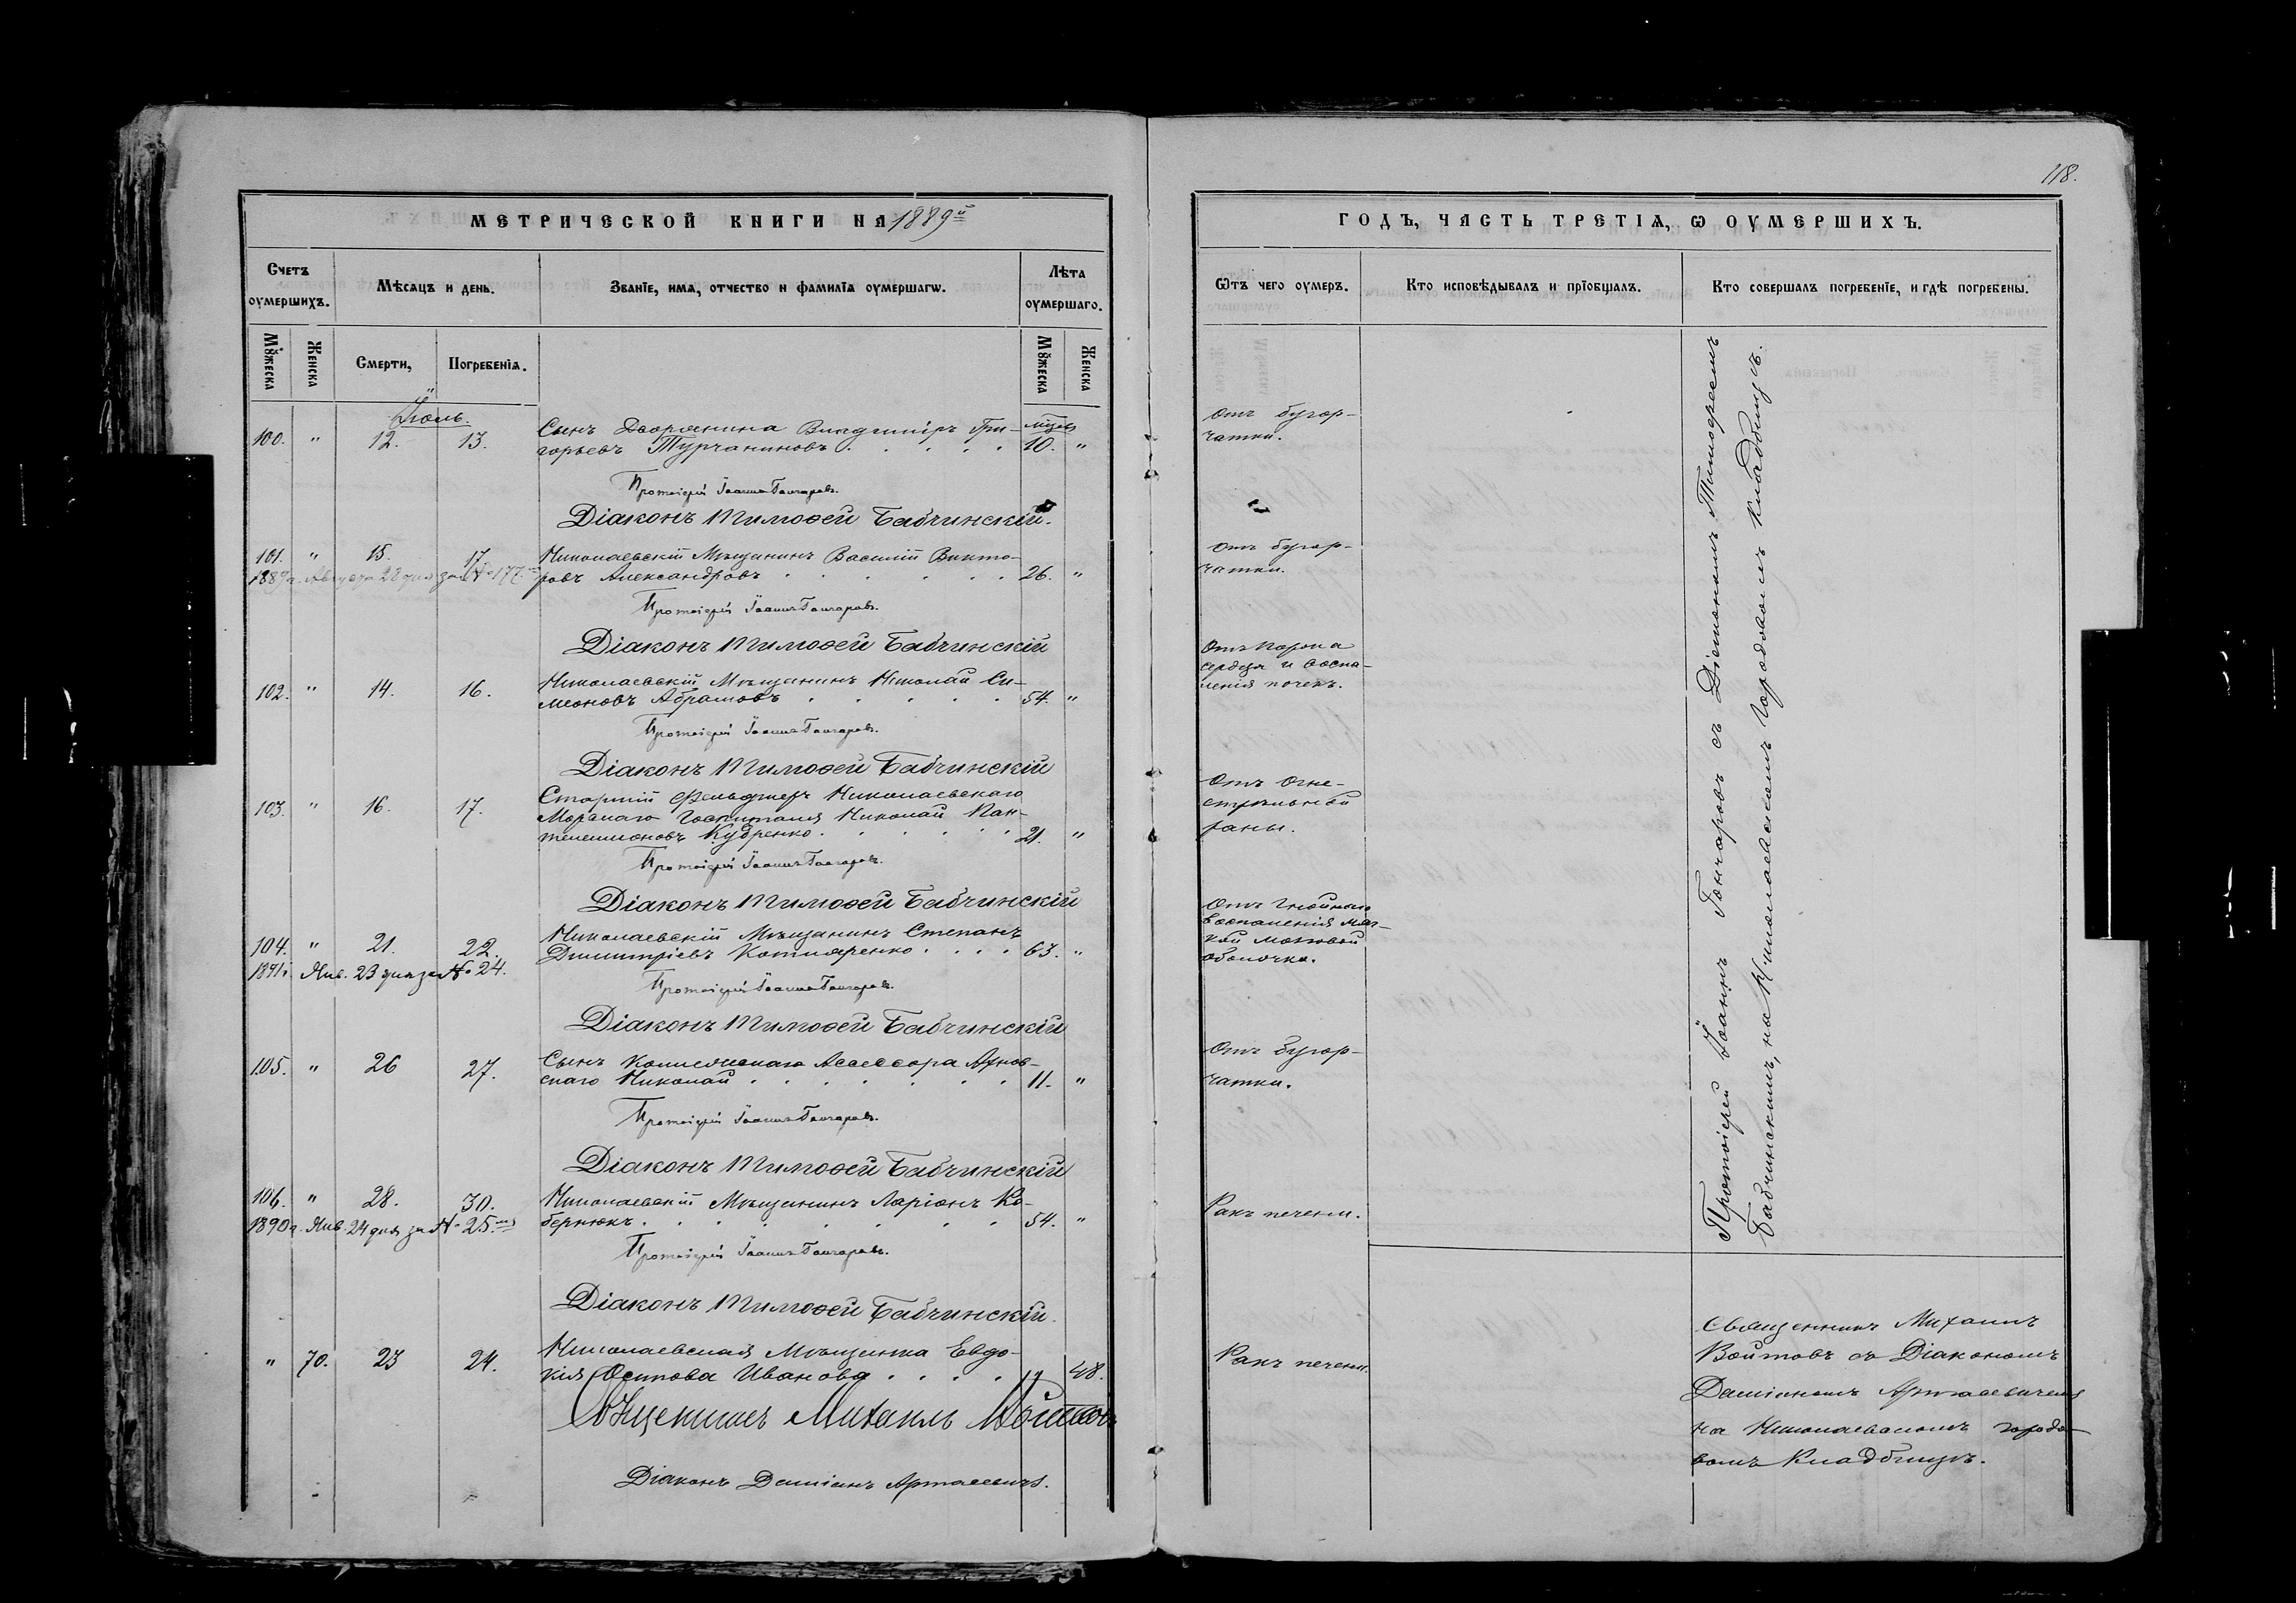 МЕТРИЧЕСКОЙ КНИГИ НА 1889й
Счетъ оумершихъ.
Мѣсяцъ и день.
Званіе, имя, отчество и фамилія оумершагѡ.
Лѣта оумершаго.
Мꙋжеска
Женска
Смерти,
Погребенія.
Мꙋжеска
Женска
Іюль.
100. " 12. 13. Сынъ Дворянина Владиміръ Гри-
горьевъ Турчаниновъ . . . . . 10. "
Протоіерей Іоаннъ Гончаровъ.
Діаконъ Тимоѳей Бабчинскій.
101. " 15. 17. Николаевскій Мѣщанинъ Василій Викто-
1889г. Августа 28 дня за № 177. ровъ Александровъ . . . . . . 26. "
Протоіерей Іоаннъ Гончаровъ.
Діаконъ Тимоѳей Бабчинскій
102. " 14. 16. Николаевскій Мѣщанинъ Николай Си-
меоновъ Абрамовъ . . . . . 54. "
Протоіерей Іоаннъ Гончаровъ.
Діаконъ Тимоѳей Бабчинскій
103. " 16. 17. Старшій Фельдшеръ Николаевскаго
Морскаго Госпиталя Николай Пан-
телеимоновъ Кудренко . . . . . 21. "
Протоіерей Іоаннъ Гончаровъ.
Діаконъ Тимоѳей Бабчинскій
104. " 21. 22. Николаевскій Мѣщанинъ Степанъ
Димитріевъ Котляренко . . . . 63. "
1891г. Янв. 23 дня за № 24.
Протоіерей Іоаннъ Гончаровъ.
Діаконъ Тимоѳей Бабчинскій
105. " 26 27. Сынъ Коллежскаго Ассессора
скаго Николай . . . . . . . 11. "
Протоіерей Іоаннъ Гончаровъ.
Діаконъ Тимоѳей Бабчинскій
106. " 28. 30. Николаевскій Мѣщанинъ Ларіонъ Ко-
1890г. Янв. 24 дня за № 25. бернюкъ . . . . . . . . 54. "
Протоіерей Іоаннъ Гончаровъ.
Діаконъ Тимоѳей Бабчинскій.
" 70. 23 24. Николаевская Мѣщанка Евдо-
кія Осипова Иванова . . . . " 48.
Священникъ Михаилъ Войтовъ
Діаконъ Даміанъ Артасевичъ.
118.
ГОДЪ, ЧАСТЬ ТРЕТІЯ, Ѡ ОУМЕРШИХЪ.
Ѿтъ чего оумеръ.
Кто исповѣдывалъ и пріобщалъ.
Кто совершалъ погребеніе, и гдѣ погребены.
Отъ бугор-
чатки.
Отъ бугор-
чатки.
Отъ Порока
сердца и воспа-
ленія почекъ.
Отъ огне-
стрѣльной
раны.
Отъ гнойнаго
воспаленія мяг-
кой мозговой
оболочки.
Отъ бугор-
чатки.
Ракъ печени.
Протоіерей Іоаннъ Гончаровъ съ Діакономъ Тимоѳеемъ
Бабчинскимъ, на Николаевскомъ Городскомъ кладбищѣ.
Ракъ печени.
Священникъ Михаилъ
Войтовъ съ Діакономъ
Даміаномъ Артасевичемъ
на Николаевскомъ городс-
комъ Кладбищѣ.